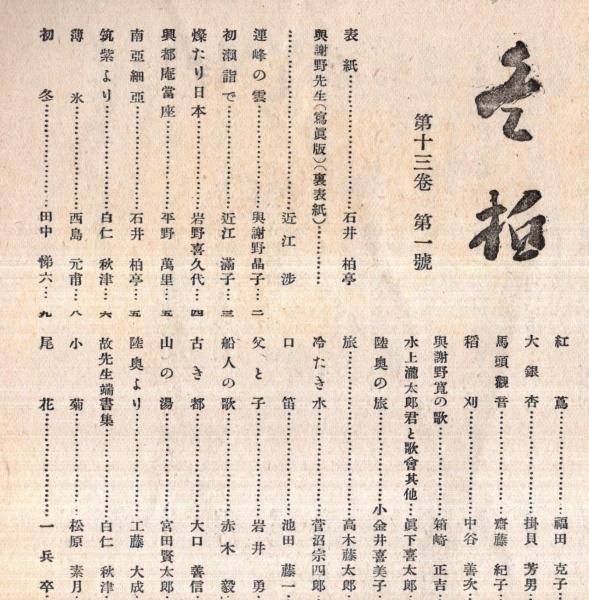 冬柏
第十三卷 第一號
表紙………石井 柏亭
與謝野先生(寫眞版)(裏表紙)………
………近江 渉
連峰の雲………與謝野晶子…二
初瀬詣で………近江 滿子…三
燦たり日本………岩野喜久代…四
興都庵當座………平野 萬里…五
南亞細亞………石井 柏亭…五
筑紫より………白仁 秋津…六
薄氷………西島 元甫…八
初冬………田中 悌六…九
紅蔦………福田 克子
大銀杏………掛貝 芳男
馬頭觀音………齋藤 紀子
稻刈………中谷 善次
與謝野寛の歌………箱崎 正吉
水上瀧太郎君と歌會其他…眞下喜太郎
陸奧の旅………小金井喜美子
旅………高木藤太郎
冷たき水………菅沼宗四郎
口笛………池田 藤一
父と子………岩井 勇
船人の歌………赤木 毅
古き都………大口 善信
山の湯………宮田賢太郎
陸奧より………工藤 大成
故先生端書集………白仁 秋津
小菊………松原 素月
尾花………一兵卒